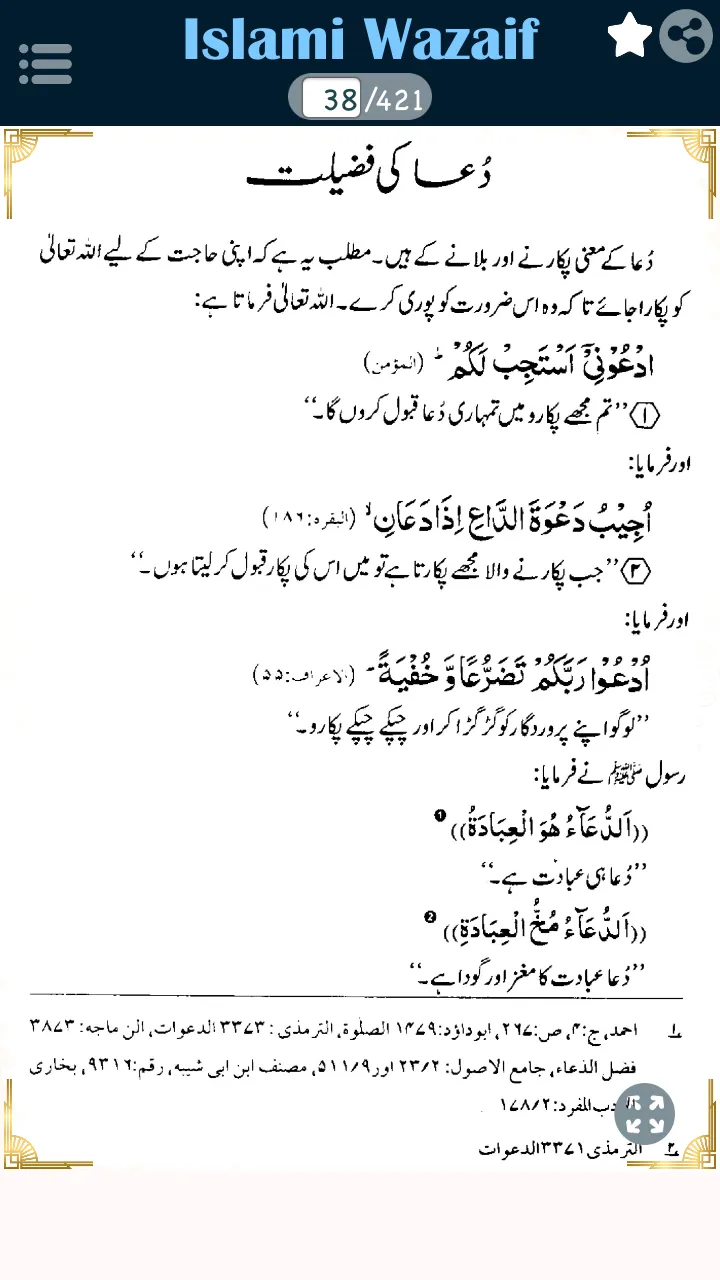 Islami Wazaif
38/421
دُعا کی فضیلت
دُعا کے معنی پکارنے اور بلانے کے ہیں۔ مطلب یہ ہے کہ اپنی حاجت کے لیے اللہ تعالیٰ
کو پکارا جائے تا کہ وہ اس ضرورت کو پوری کرے۔ اللہ تعالیٰ فرماتا ہے:
ادْعُوْنِیْۤ اَسْتَجِبْ لَكُمْ ؕ (المؤمن)
۱ ’’تم مجھے پکارو میں تمہاری دُعا قبول کروں گا۔‘‘
اور فرمایا:
اُجِیْبُ دَعْوَةَ الدَّاعِ اِذَا دَعَانِ ۙ (البقرہ:۱۸۶)
۲ ’’جب پکارنے والا مجھے پکارتا ہے تو میں اس کی پکار قبول کر لیتا ہوں۔‘‘
اور فرمایا:
اُدْعُوْا رَبَّكُمْ تَضَرُّعًا وَّ خُفْیَةً ؕ (الاعراف:۵۵)
’’لوگو اپنے پروردگار کو گڑگڑا کر اور چپکے چپکے پکارو۔‘‘
رسول ﷺ نے فرمایا:
((اَلدُّعَآءُ هُوَ الْعِبَادَةُ)) ❶
’’دُعا ہی عبادت ہے۔‘‘
((اَلدُّعَآءُ مُخُّ الْعِبَادَةِ)) ❷
’’دُعا عبادت کا مغز اور گودا ہے۔‘‘
۱ احمد، ج:۴، ص:۲۶۷، ابوداؤد:۱۴۷۹ الصلٰوة، الترمذی: ۳۳۷۳ الدعوات، الن ماجه: ۳۸۷۳
فضل الدعاء، جامع الاصول: ۲۳/۲ اور ۵۱۱/۹، مصنف ابن ابی شیبه، رقم:۹۳۱۶، بخاری
دب المفرد:۱۷۸/۲
۲ الترمذی ۳۳۷۱ الدعوات